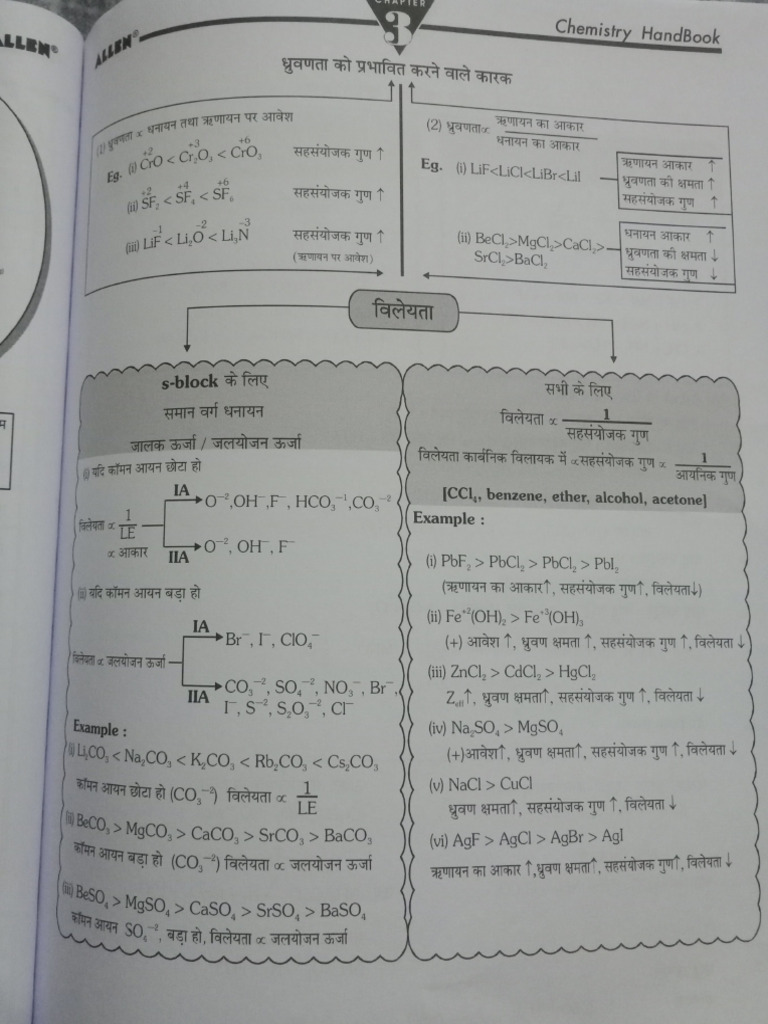 ALLEN®
ALLEN®
CHAPTER
3
Chemistry HandBook
ध्रुवणता को प्रभावित करने वाले कारक
(1) ध्रुवणता ∝ धनायन तथा ऋणायन पर आवेश
Eg. (i) Cr⁺²O < Cr⁺³₂O₃ < Cr⁺⁶O₃ सहसंयोजक गुण ↑
(ii) S⁺²F₂ < S⁺⁴F₄ < S⁺⁶F₆ सहसंयोजक गुण ↑
(iii) LiF⁻¹ < Li₂O⁻² < Li₃N⁻³ सहसंयोजक गुण ↑
(ऋणायन पर आवेश)
(2) ध्रुवणता∝ ऋणायन का आकार / धनायन का आकार
Eg. (i) LiF<LiCl<LiBr<LiI
ऋणायन आकार ↑
ध्रुवणता की क्षमता ↑
सहसंयोजक गुण ↑
(ii) BeCl₂>MgCl₂>CaCl₂>
SrCl₂>BaCl₂
धनायन आकार ↑
ध्रुवणता की क्षमता ↓
सहसंयोजक गुण ↓
विलेयता
s-block के लिए
समान वर्ग धनायन
जालक ऊर्जा / जलयोजन ऊर्जा
(i) यदि कॉमन आयन छोटा हो
विलेयता ∝ 1/LE
∝ आकार
IA O⁻²,OH⁻,F⁻, HCO₃⁻¹,CO₃⁻²
IIA O⁻², OH⁻, F⁻
(ii) यदि कॉमन आयन बड़ा हो
विलेयता ∝ जलयोजन ऊर्जा
IA Br⁻, I⁻, ClO₄⁻
IIA CO₃⁻², SO₄⁻², NO₃⁻, Br⁻,
I⁻, S⁻², S₂O₃⁻², Cl⁻
Example :
(i) Li₂CO₃ < Na₂CO₃ < K₂CO₃ < Rb₂CO₃ < Cs₂CO₃
कॉमन आयन छोटा हो (CO₃⁻²) विलेयता ∝ 1/LE
(ii) BeCO₃ > MgCO₃ > CaCO₃ > SrCO₃ > BaCO₃
कॉमन आयन बड़ा हो (CO₃⁻²) विलेयता ∝ जलयोजन ऊर्जा
(iii) BeSO₄ > MgSO₄ > CaSO₄ > SrSO₄ > BaSO₄
कॉमन आयन SO₄⁻², बड़ा हो, विलेयता ∝ जलयोजन ऊर्जा
सभी के लिए
विलेयता ∝ 1/सहसंयोजक गुण
विलेयता कार्बनिक विलायक में ∝सहसंयोजक गुण ∝ 1/आयनिक गुण
[CCl₄, benzene, ether, alcohol, acetone]
Example :
(i) PbF₂ > PbCl₂ > PbCl₂ > PbI₂
(ऋणायन का आकार↑, सहसंयोजक गुण↑, विलेयता↓)
(ii) Fe⁺²(OH)₂ > Fe⁺³(OH)₃
(+) आवेश ↑, ध्रुवण क्षमता ↑, सहसंयोजक गुण ↑, विलेयता ↓
(iii) ZnCl₂ > CdCl₂ > HgCl₂
Zeff↑, ध्रुवण क्षमता↑, सहसंयोजक गुण ↑, विलेयता ↓
(iv) Na₂SO₄ > MgSO₄
(+)आवेश↑, ध्रुवण क्षमता↑, सहसंयोजक गुण ↑, विलेयता ↓
(v) NaCl > CuCl
ध्रुवण क्षमता↑, सहसंयोजक गुण ↑, विलेयता ↓
(vi) AgF > AgCl > AgBr > AgI
ऋणायन का आकार ↑,ध्रुवण क्षमता↑, सहसंयोजक गुण↑, विलेयता ↓